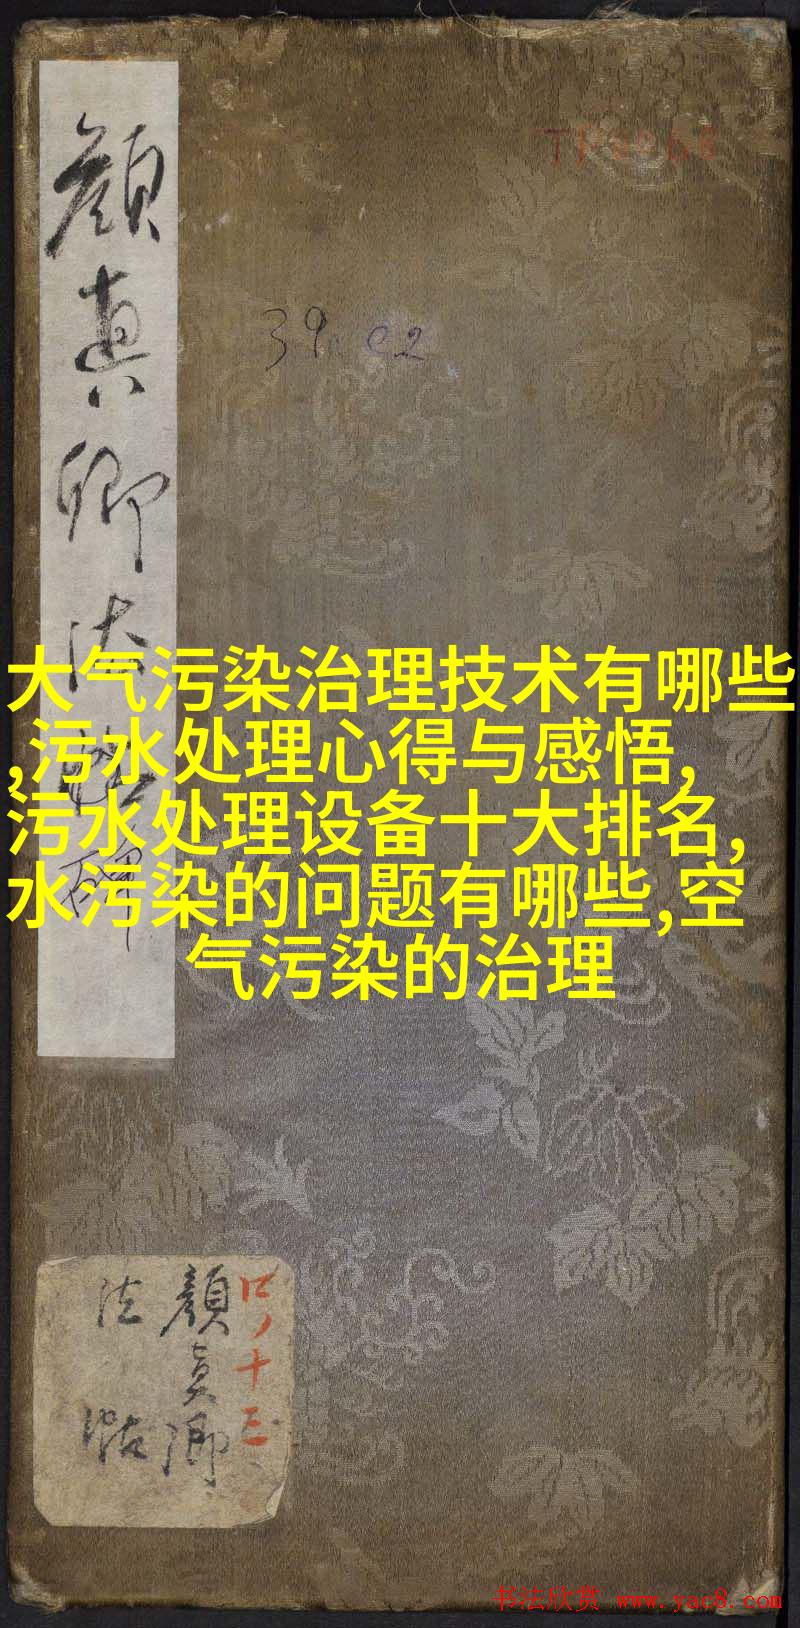 顔真卿法帖
TP
39.c2
大气污染治理技术有哪些
,污水处理心得与感悟,
污水处理设备十大排名,
水污染的问题有哪些,空
气污染的治理
顔真卿
法帖
书法欣赏 www.yac8.com